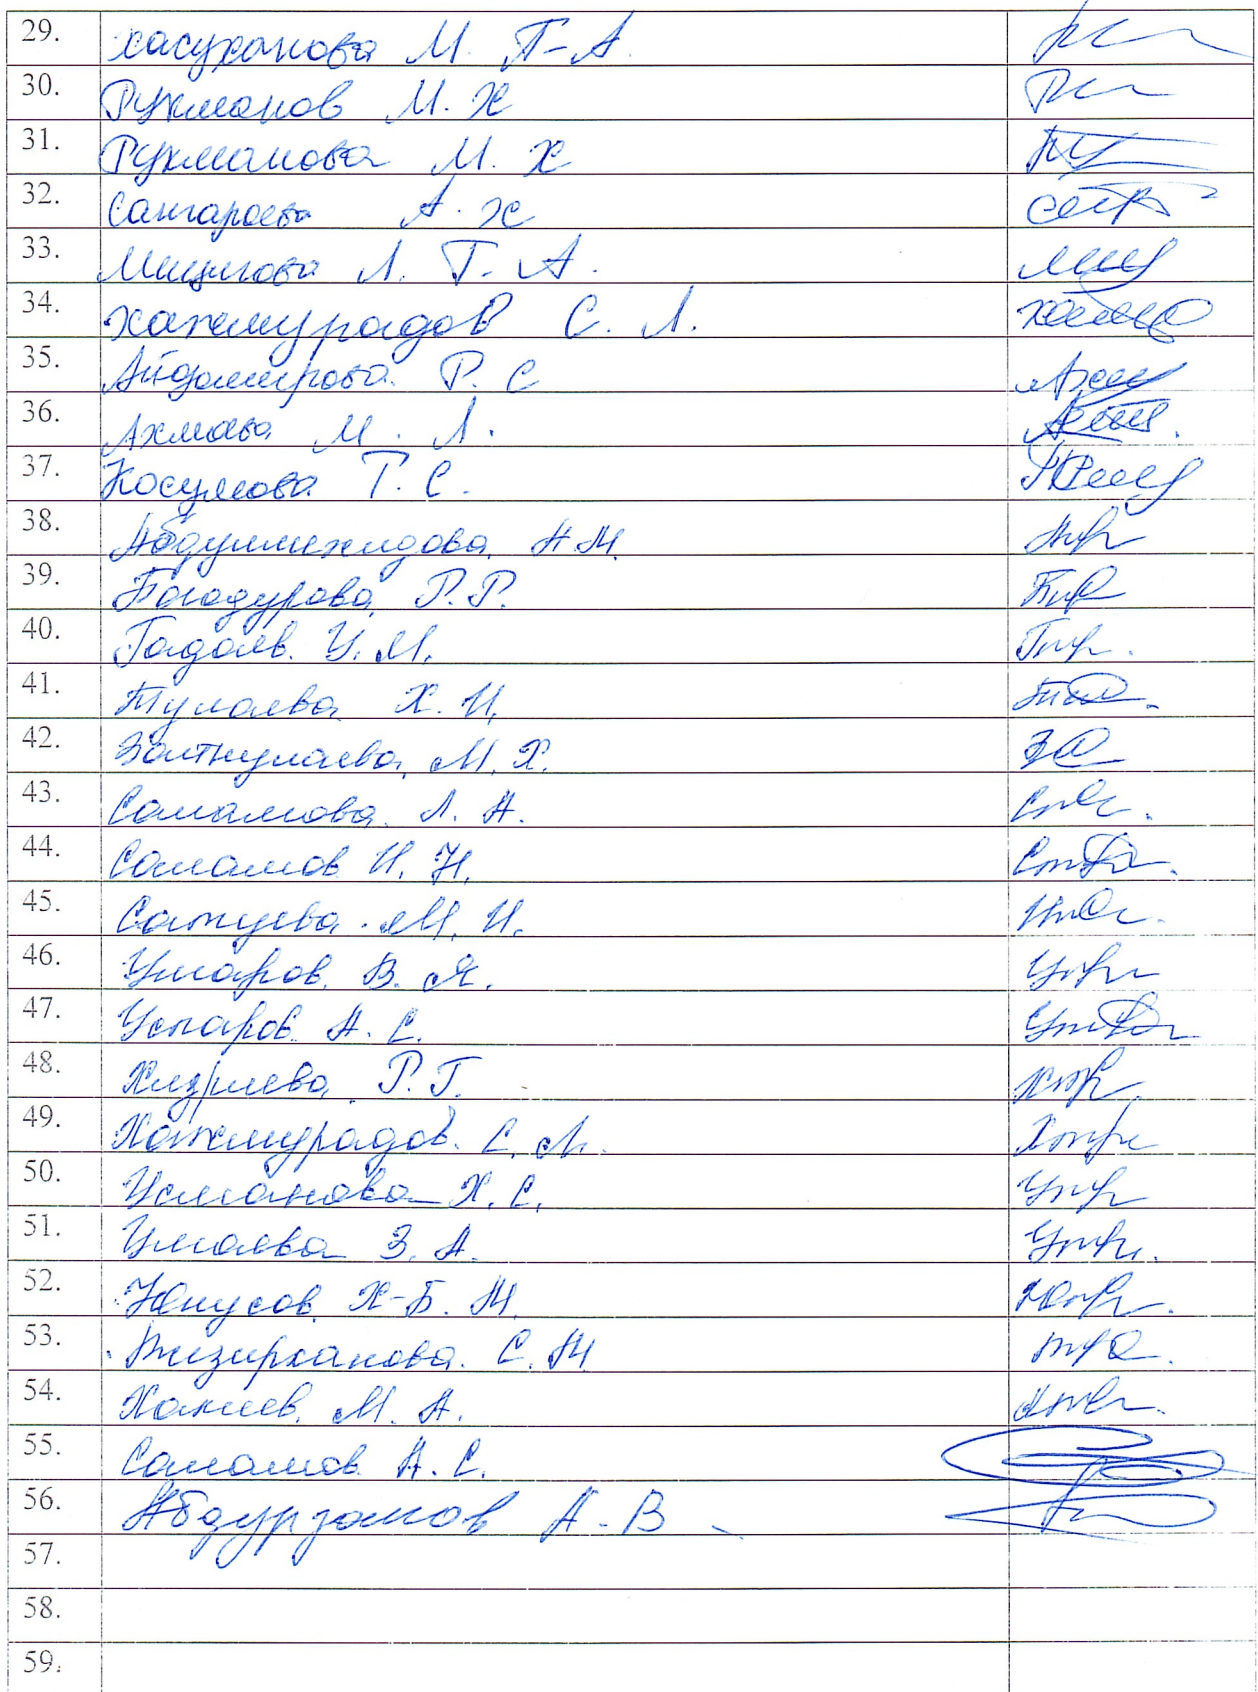 29. Хасуханова М. Т-А.
30. Рукманов М. Х
31. Рукманова М. Х
32. Сангароева А. Х
33. Мицигова Л. Т-А.
34. Хажмурадов С. Л.
35. Айдамирова Р. С
36. Ахмаева М. Л.
37. Косумова Т. С.
38. Абдулмежидова А.М.
39. Багадурова Р.Р.
40. Гадаев. У. М.
41. Тулаева Х. И.
42. Зайткулаева М. Х.
43. Саламова Л. А.
44. Саламов И. Н.
45. Сатуева. М. И.
46. Умаров. В. Я.
47. Успаров. А. С.
48. Хидриева Р. Г.
49. Хажмурадов. С. М.
50. Усманова Х. С.
51. Умаева З. А.
52. Юнусов Х-Б. М.
53. Визирханова. С. М
54. Хакиев. М. А.
55. Саламов А. С.
56. Абдурзаков А-В
57.
58.
59.